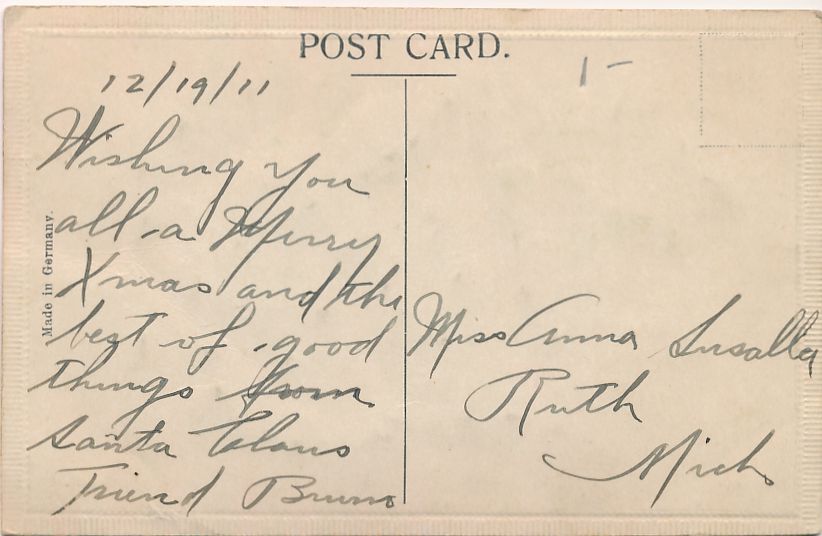 POST CARD.
1-
12/19/11
Wishing you
all a Merry
Xmas and the
best of good
things from
Santa Claus
Friend Bruno
Made in Germany.
Miss Anna
Ruth
Mich